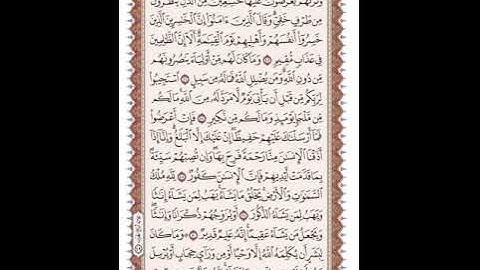 وَتَرَىٰهُمْ يُعْرَضُونَ عَلَيْهَا خَـٰشِعِينَ مِنَ ٱلذُّلِّ يَنظُرُونَ
مِن طَرْفٍ خَفِىٍّ وَقَالَ ٱلَّذِينَ ءَامَنُوٓا۟ إِنَّ ٱلْخَـٰسِرِينَ ٱلَّذِينَ
خَسِرُوٓا۟ أَنفُسَهُمْ وَأَهْلِيهِمْ يَوْمَ ٱلْقِيَـٰمَةِ أَلَآ إِنَّ ٱلظَّـٰلِمِينَ
فِى عَذَابٍ مُّقِيمٍ ٤٥ وَمَا كَانَ لَهُم مِّنْ أَوْلِيَآءَ يَنصُرُونَهُم
مِّن دُونِ ٱللَّهِ وَمَن يُضْلِلِ ٱللَّهُ فَمَا لَهُۥ مِن سَبِيلٍ ٤٦ ٱسْتَجِيبُوا۟
لِرَبِّكُم مِّن قَبْلِ أَن يَأْتِىَ يَوْمٌ لَّا مَرَدَّ لَهُۥ مِنَ ٱللَّهِ مَا لَكُم
مِّن مَّلْجَإٍ يَوْمَئِذٍ وَمَا لَكُم مِّن نَّكِيرٍ ٤٧ فَإِنْ أَعْرَضُوا۟
فَمَآ أَرْسَلْنَـٰكَ عَلَيْهِمْ حَفِيظًا إِنْ عَلَيْكَ إِلَّا ٱلْبَلَـٰغُ وَإِنَّآ إِذَآ
أَذَقْنَا ٱلْإِنسَـٰنَ مِنَّا رَحْمَةً فَرِحَ بِهَا وَإِن تُصِبْهُمْ سَيِّئَةٌۢ
بِمَا قَدَّمَتْ أَيْدِيهِمْ فَإِنَّ ٱلْإِنسَـٰنَ كَفُورٌ ٤٨ لِّلَّهِ مُلْكُ
ٱلسَّمَـٰوَٰتِ وَٱلْأَرْضِ يَخْلُقُ مَا يَشَآءُ يَهَبُ لِمَن يَشَآءُ إِنَـٰثًا
وَيَهَبُ لِمَن يَشَآءُ ٱلذُّكُورَ ٤٩ أَوْ يُزَوِّجُهُمْ ذُكْرَانًا وَإِنَـٰثًا
وَيَجْعَلُ مَن يَشَآءُ عَقِيمًا إِنَّهُۥ عَلِيمٌ قَدِيرٌ ٥٠ وَمَا كَانَ
لِبَشَرٍ أَن يُكَلِّمَهُ ٱللَّهُ إِلَّا وَحْيًا أَوْ مِن وَرَآئِ حِجَابٍ أَوْ يُرْسِلَ